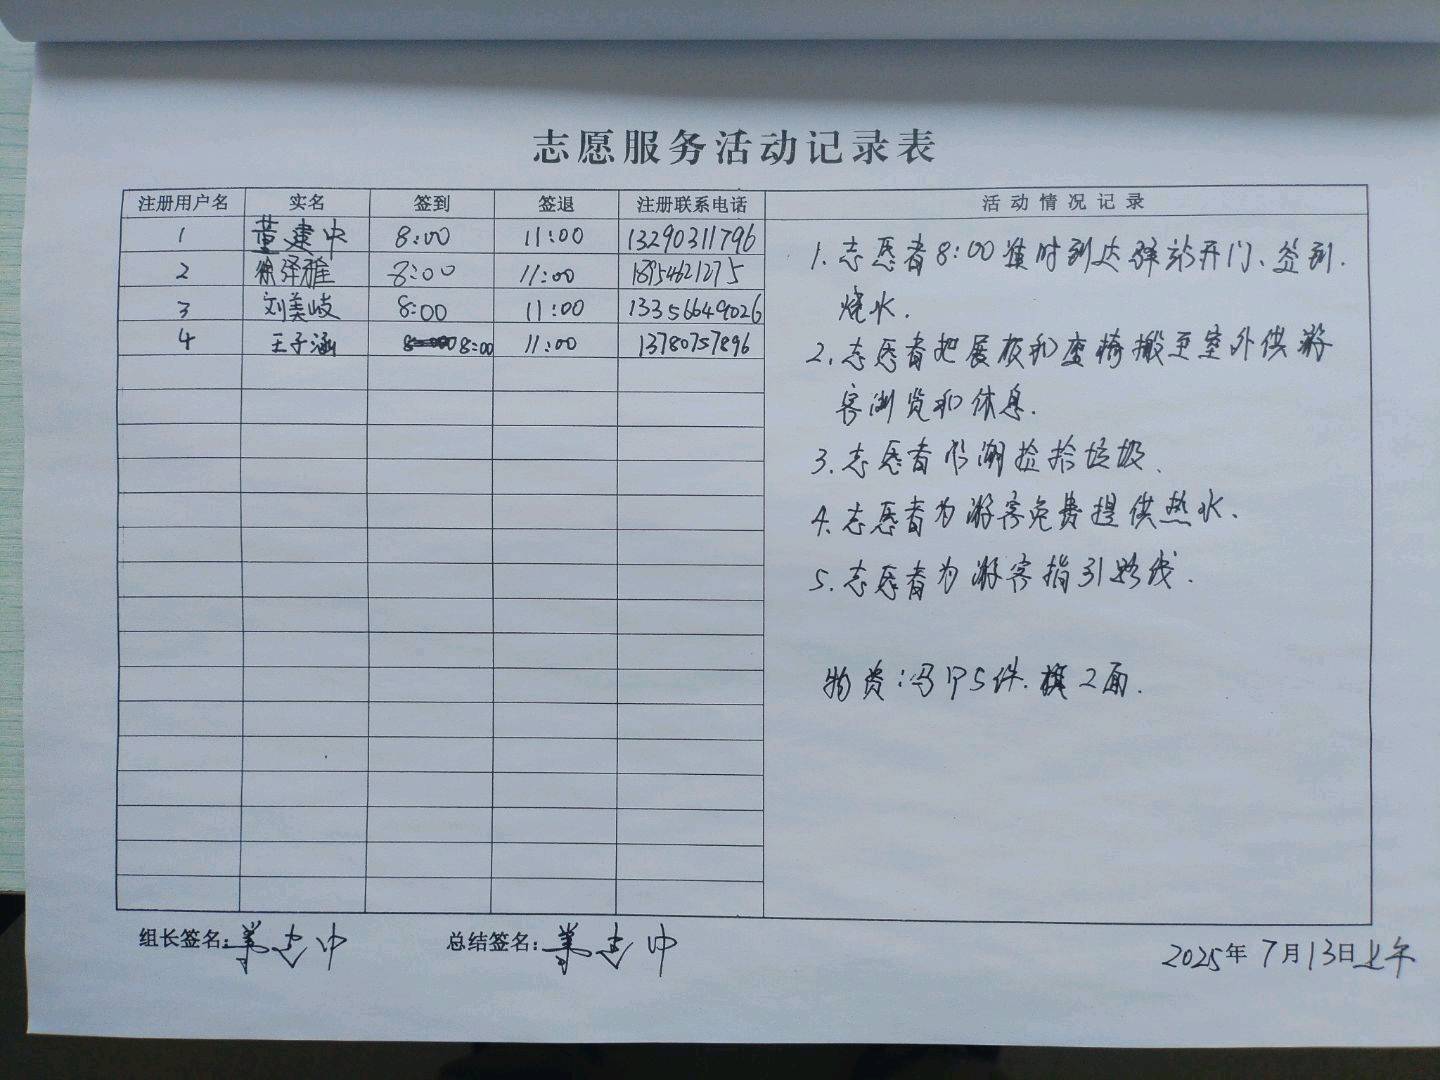 志愿服务活动记录表
注册用户名 实名 签到 签退 注册联系电话 活动情况记录
1 董建中 8:00 11:00 13290311796
2 徐泽雅 8:00 11:00 18954621275
3 刘美岐 8:00 11:00 13356649026
4 王子涵 8:00 11:00 13780757896
1. 志愿者8:00准时到达驿站开门、签到.
烧水.
2. 志愿者把展板和座椅搬至室外供游
客浏览和休息.
3. 志愿者环湖捡拾垃圾.
4. 志愿者为游客免费提供热水.
5. 志愿者为游客指引路线.
物资:马甲5件.旗2面.
组长签名: 总结签名:
2025年7月13日上午